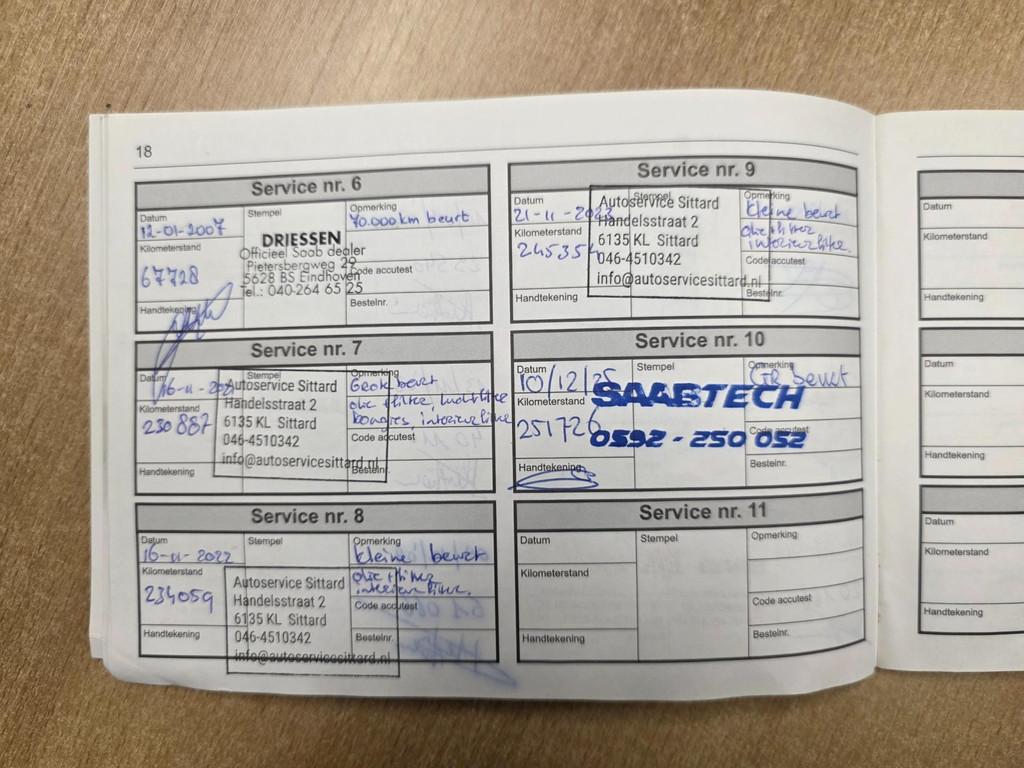 18
Service nr. 6
Datum
12-01-2007
Stempel
DRIESSEN
Officieel Saab dealer
Pietersbergweg 29
5628 BS Eindhoven
Tel.: 040-264 65 25
Opmerking
70.000 km beurt
Kilometerstand
67728
Code accutest
Bestelnr.
Handtekening
Service nr. 7
Datum
16-11-2021
Stempel
Autoservice Sittard
Handelsstraat 2
6135 KL Sittard
046-4510342
info@autoservicesittard.nl
Opmerking
Grote beurt
olie + filter luchtfilter
bougies, interieurfilter
Kilometerstand
230887
Code accutest
Bestelnr.
Handtekening
Service nr. 8
Datum
16-11-2022
Stempel
Autoservice Sittard
Handelsstraat 2
6135 KL Sittard
046-4510342
info@autoservicesittard.nl
Opmerking
kleine beurt
olie + filter
interieurfilter.
Kilometerstand
234059
Code accutest
Bestelnr.
Handtekening
Service nr. 9
Datum
21-11-2023
Stempel
Autoservice Sittard
Handelsstraat 2
6135 KL Sittard
046-4510342
info@autoservicesittard.nl
Opmerking
kleine beurt
olie + filter
interieurfilter.
Kilometerstand
245354
Code accutest
Bestelnr.
Handtekening
Service nr. 10
Datum
10/12/25
Stempel
SAABTECH
0592 - 250 052
Opmerking
GR beurt
Kilometerstand
251726
Code accutest
Bestelnr.
Handtekening
Service nr. 11
Datum
Stempel
Opmerking
Kilometerstand
Code accutest
Bestelnr.
Handtekening
Datum
Kilometerstand
Handtekening
Datum
Kilometerstand
Handtekening
Datum
Kilometerstand
Handtekening